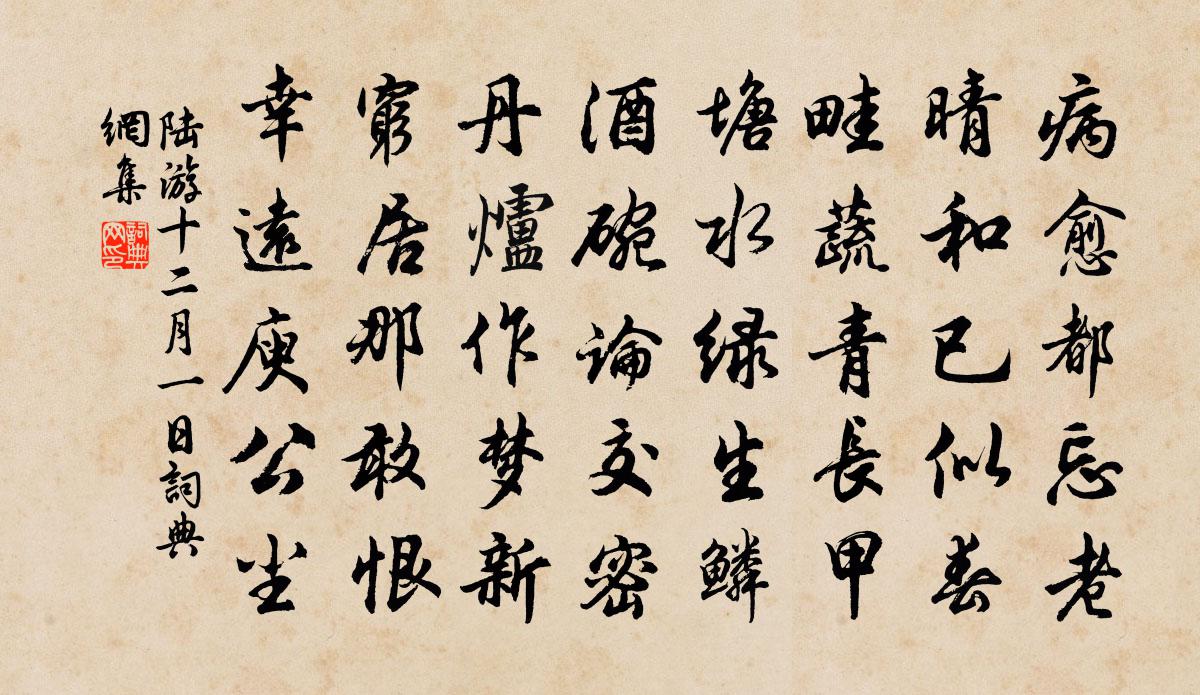 病愈都忘老
晴和已似春
畦蔬青長甲
塘水绿生鱗
酒碗論交密
丹爐作梦新
窮居那敢恨
幸遠庾公尘
陆游十二月一日詞典
網集
詞典
网印